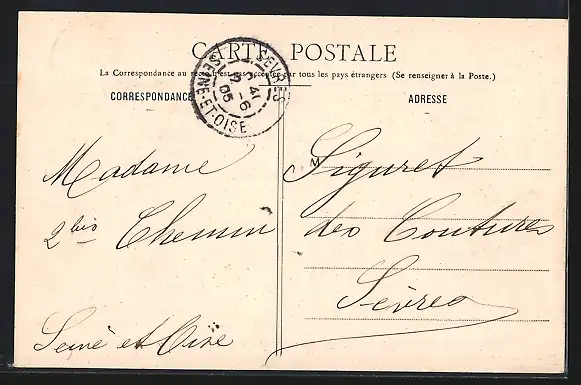 CARTE POSTALE
La Correspondance au recto n'est pas acceptée par tous les pays étrangers (Se renseigner à la Poste.)
CORRESPONDANCE ADRESSE
SEVRES
6 - 6
05
SEINE-ET-OISE
M
Madame Siguret
2 bis Chemin des Coutures
Sèvres
Seine et Oise